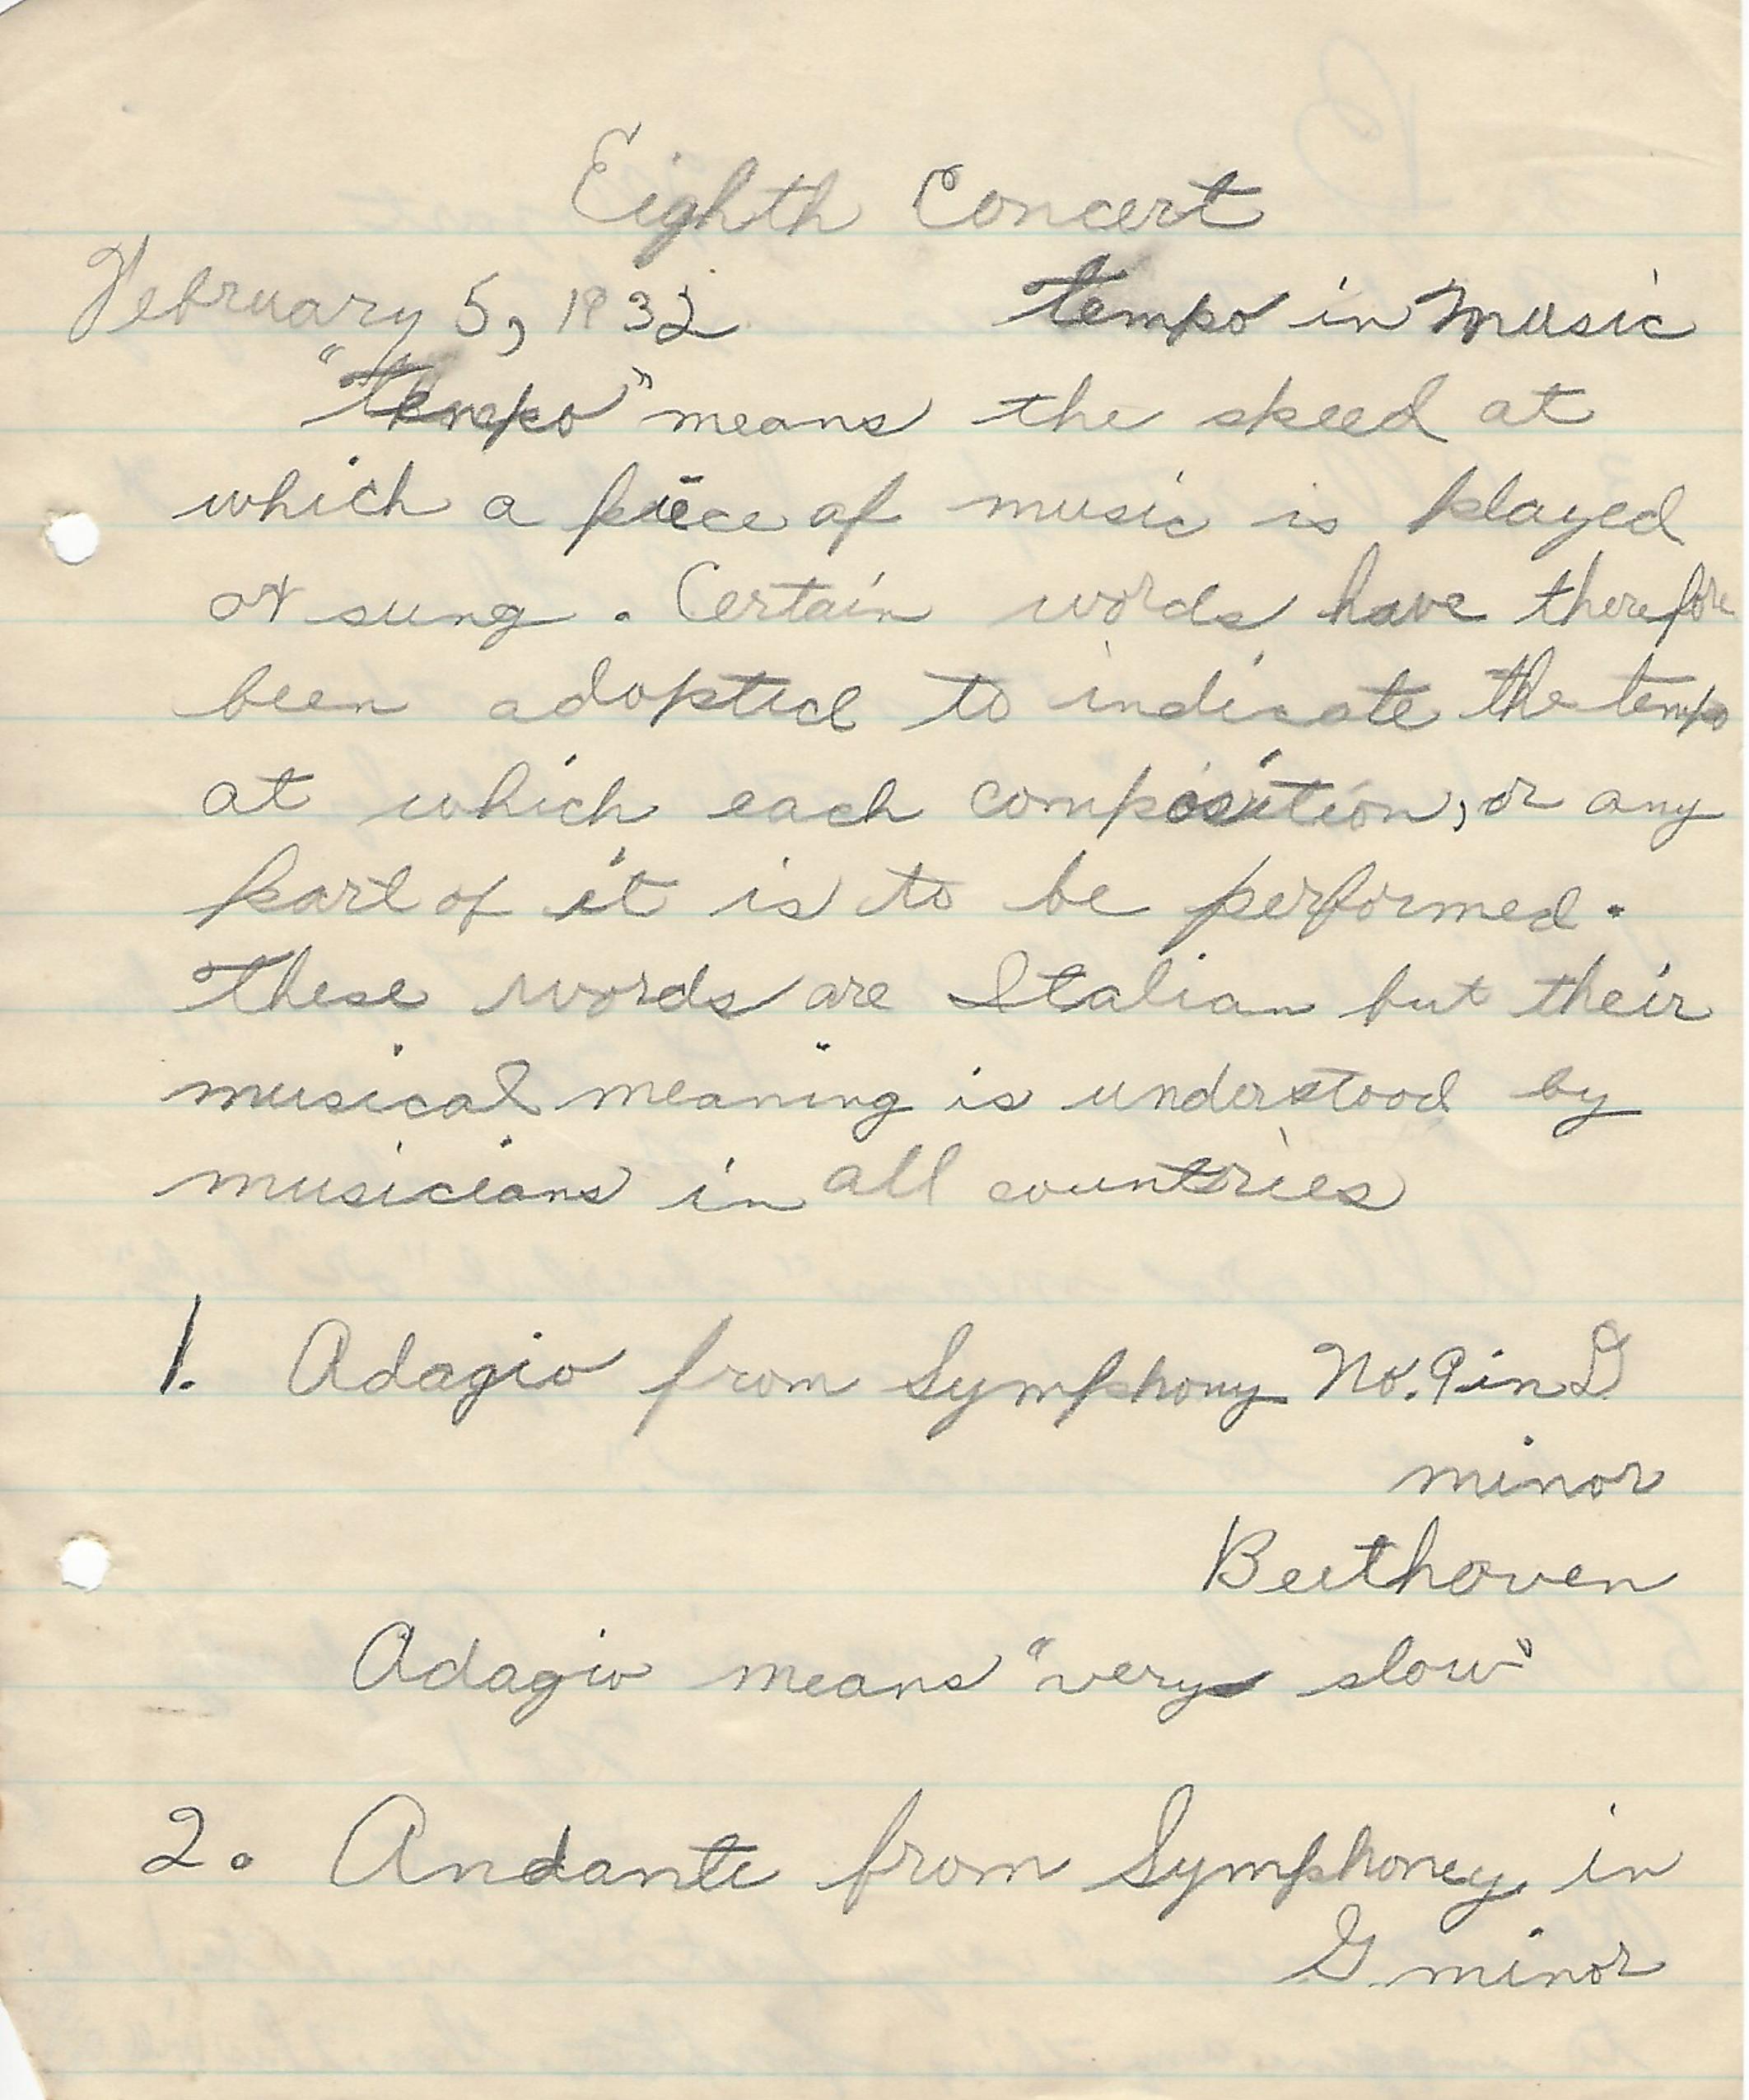 Eighth Concert
February 5, 1932 Tempo in Music
"Tempo" means the speed at
which a piece of music is played
or sung. Certain words have therefore
been adopted to indicate the tempo
at which each composition, or any
part of it is to be performed.
These words are Italian but their
musical meaning is understood by
musicians in all countries
1. Adagio from Symphony No. 9 in D
minor
Beethoven
Adagio means "very slow"
2. Andante from Symphoney in
G minor